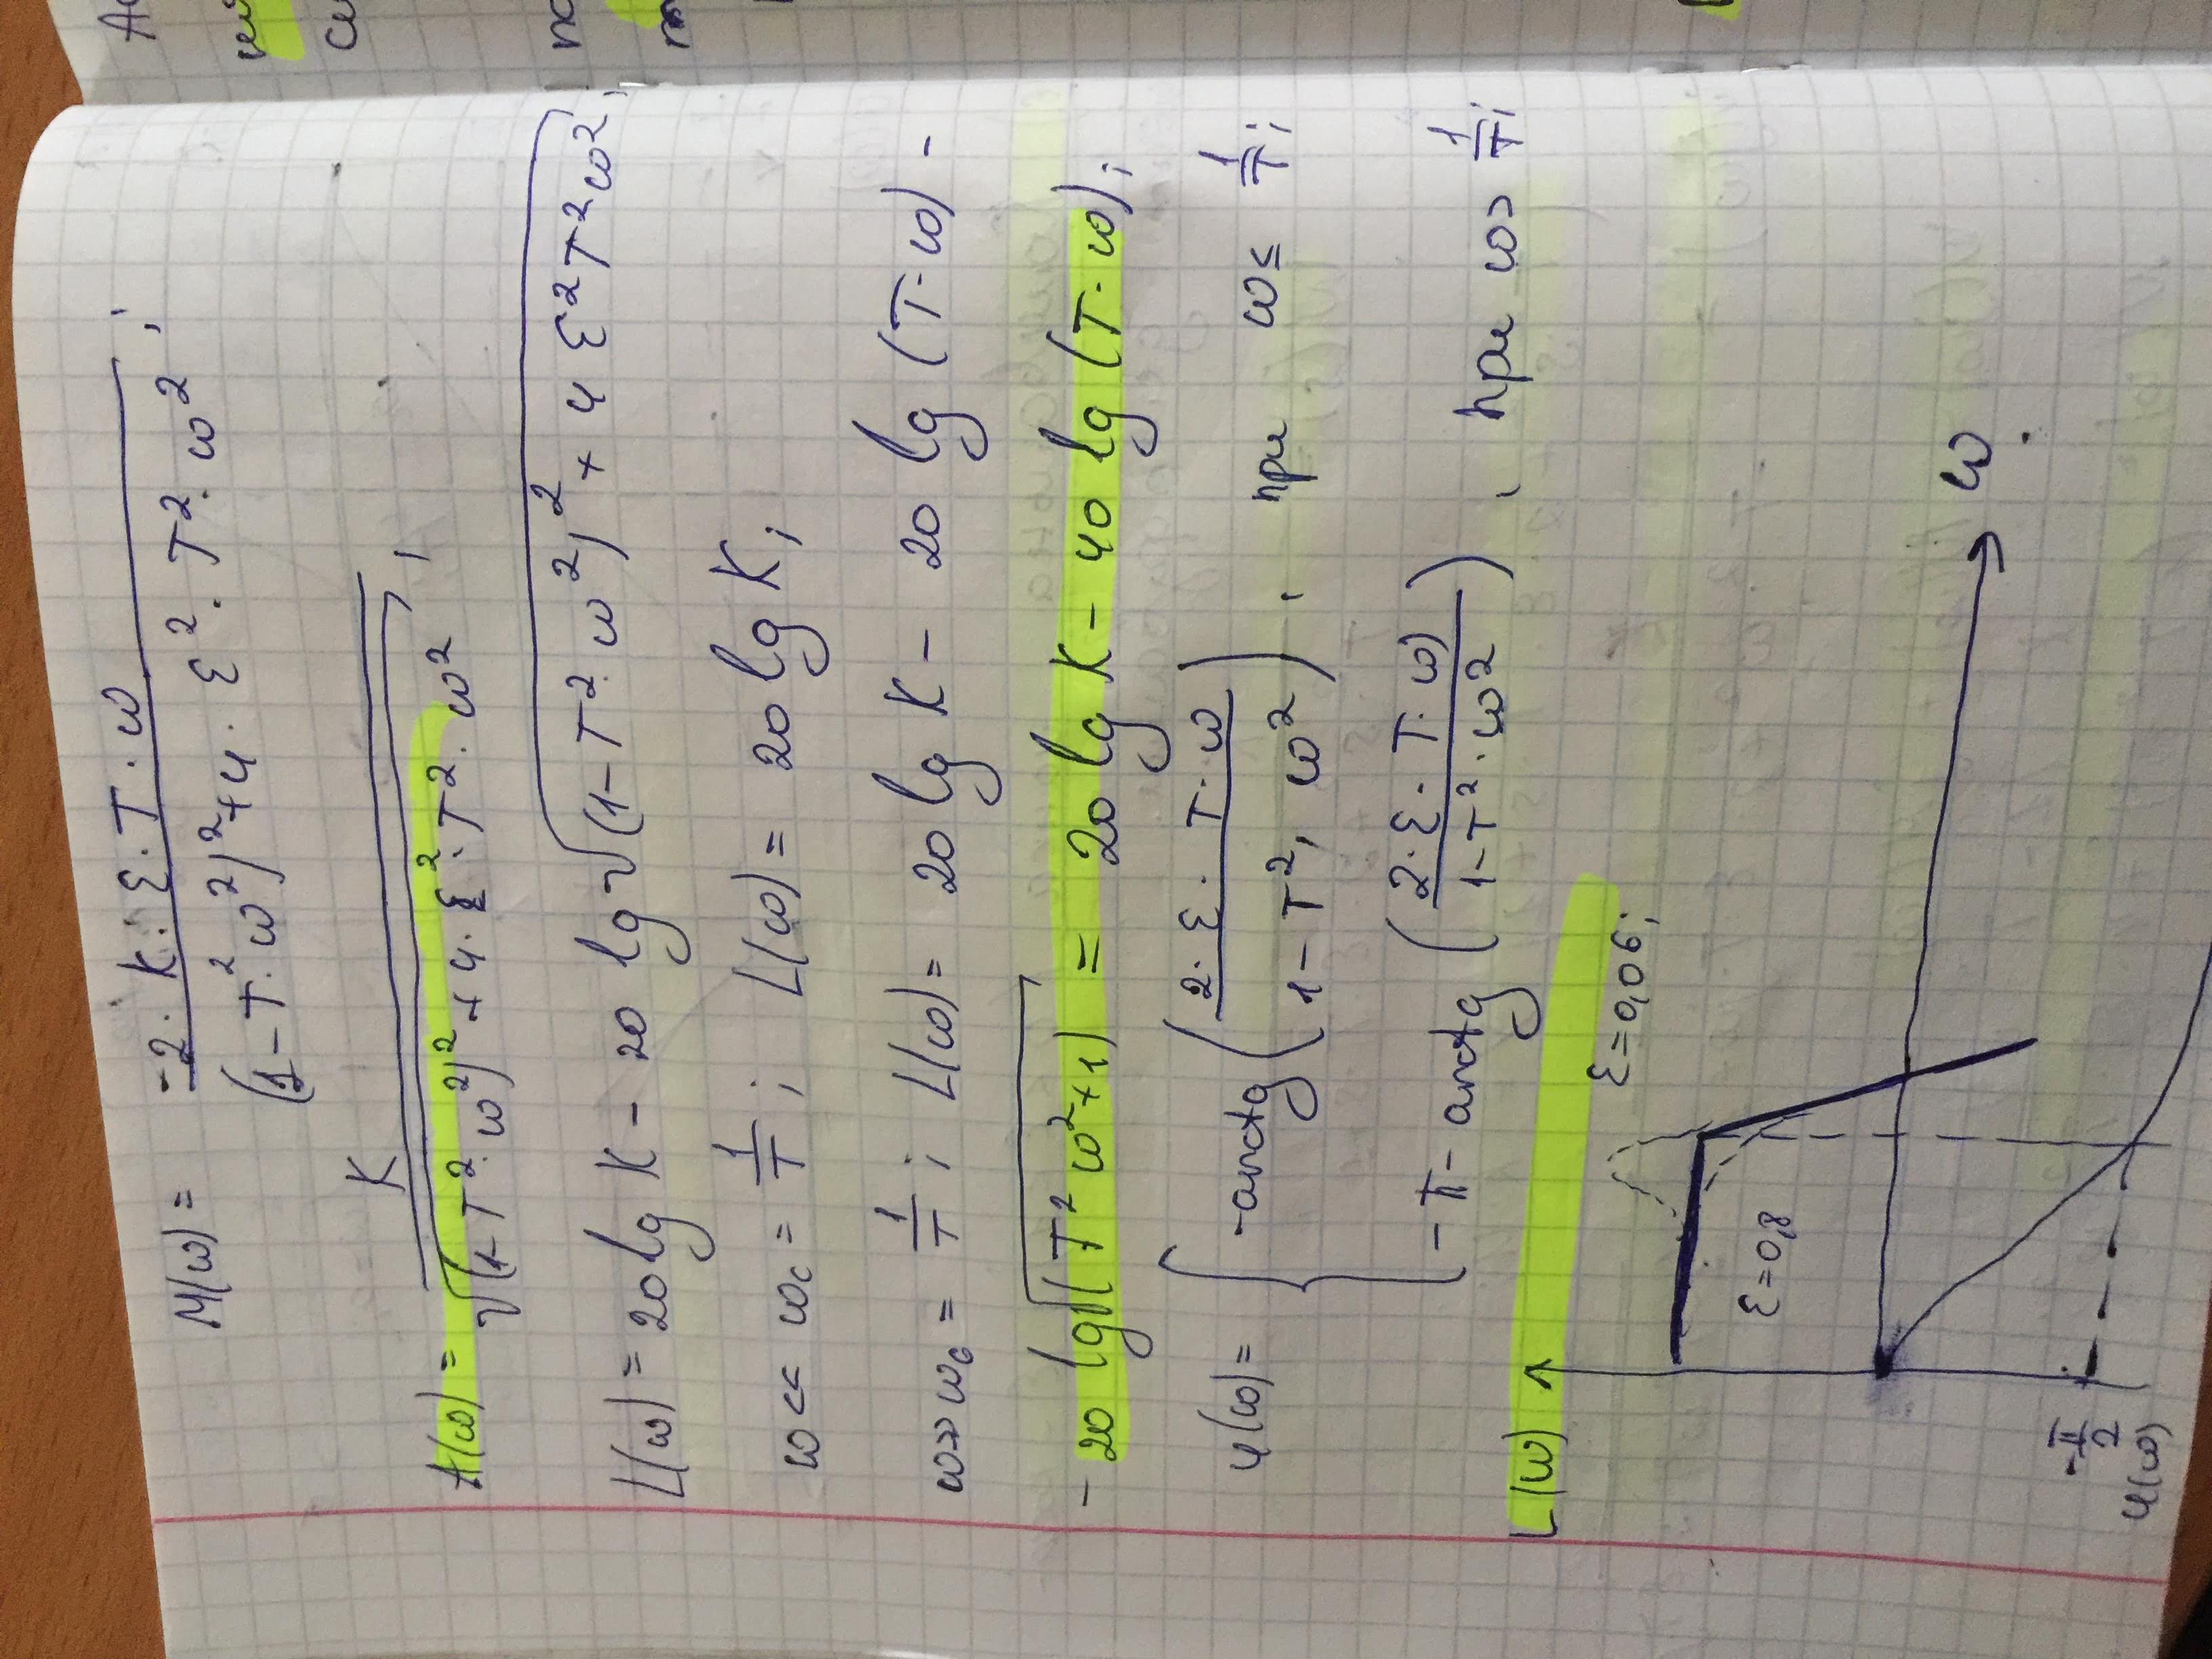 M(ω) = -2 · K · ε · T · ω / (1 - T² · ω²)² + 4 · ε² · T² · ω² ;
A(ω) = K / √(1 - T² · ω²)² + 4 · ε² · T² · ω² ,
L(ω) = 20 lg K - 20 lg √(1 - T² · ω²)² + 4 ε² T² ω² ;
ω << ωc = 1/T ; L(ω) = 20 lg K ;
ω >> ωc = 1/T ; L(ω) = 20 lg K - 20 lg (T · ω) -
- 20 lg √(T² ω² + 1) = 20 lg K - 40 lg (T · ω) ;
φ(ω) = { -arctg (2 · ε · T · ω / 1 - T² · ω²) , при ω ≤ 1/T ;
-π - arctg (2 · ε · T · ω / 1 - T² · ω²) , при ω > 1/T ;
L(ω)
ε = 0,06 ;
ε = 0,8
ω
-π/2
φ(ω)